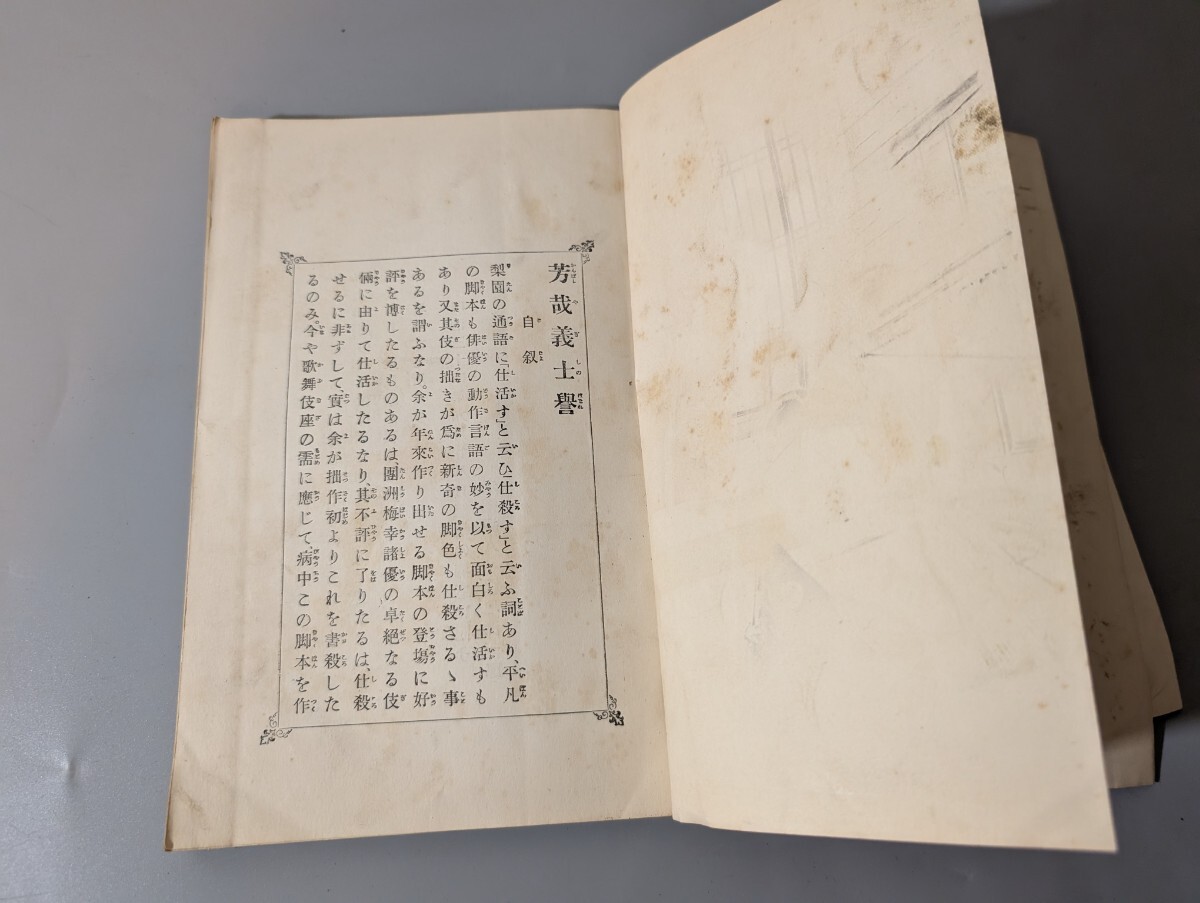 芳哉義士譽
自叙
梨園の通語に「仕活す」と云ひ「仕殺す」と云ふ詞あり、平凡
の脚本も俳優の動作言語の妙を以て面白く仕活すも
あり又其伎の拙きが爲に新奇の脚色も仕殺さるゝ事
あるを謂ふなり。余が年來作り出せる脚本の登塲に好
評を博したるものあるは、團洲梅幸諸優の卓絕なる伎
倆に由りて仕活したるなり、其不評に了りたるは、仕殺
せるに非ずして、實は余が拙作初よりこれを書殺した
るのみ。今や歌舞伎座の需に應じて、病中この脚本を作